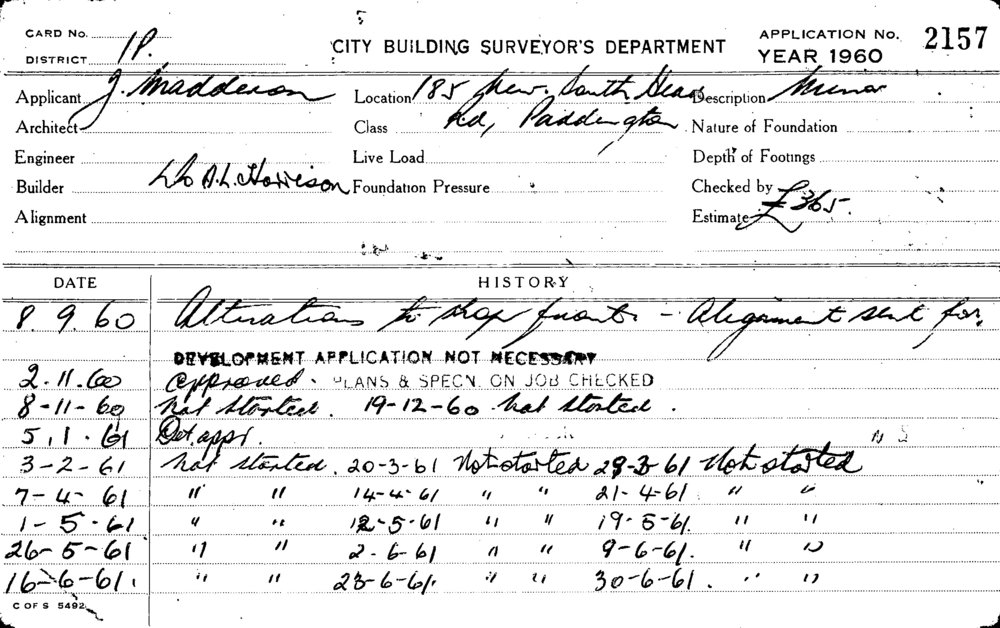 CARD No.
DISTRICT 1P.
CITY BUILDING SURVEYOR'S DEPARTMENT
APPLICATION No. 2157
YEAR 1960
Applicant J. Maddison Location 185 New South Head Description Minor
Architect Class Rd, Paddington Nature of Foundation
Engineer Live Load Depth of Footings
Builder A.L. Harrison Foundation Pressure Checked by
Alignment Estimate £365.
DATE HISTORY
8.9.60 Alterations to shop front. - Alignment sent for.
DEVELOPMENT APPLICATION NOT NECESSARY
2.11.60 approved. PLANS & SPECN. ON JOB CHECKED
8-11-60 not started. 19-12-60 not started.
5.1.61 Det. appr.
3-2-61 not started. 20-3-61 Not started 29-3-61 Not started
7-4-61 " " 14-4-61 " " 21-4-61. " "
1-5-61 " " 12-5-61 " " 19-5-61. " "
26-5-61 " " 2-6-61 " " 9-6-61. " "
16-6-61. " " 23-6-61. " " 30-6-61. " "
C OF S 5492